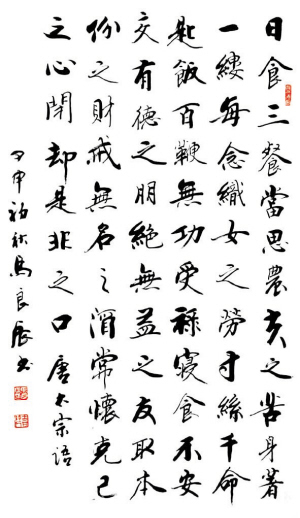 日食三餐當思農夫之苦身著
一縷每念織女之勞寸絲千命
匙飯百鞭無功受祿寢食不安
交有德之朋絕無益之友取本
份之財戒無名之酒常懷克己
之心閉却是非之口唐太宗語
申初秋馬良辰書